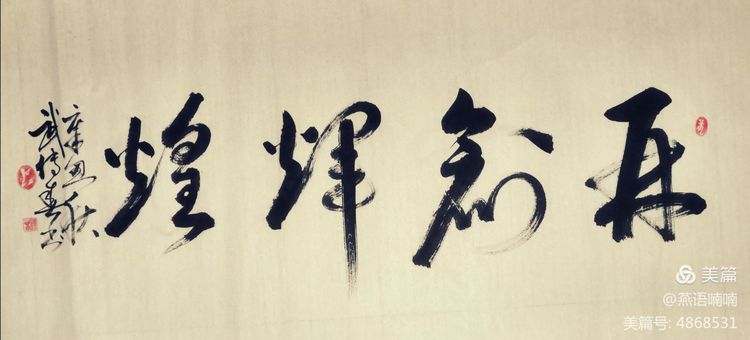 再創輝煌
辛丑秋
武传春书
美篇
@燕语喃喃
美篇号: 4868531